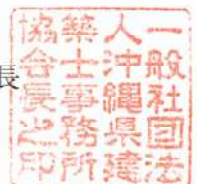 長
一般社団法
人沖縄県建
築士事務所
協会長之印